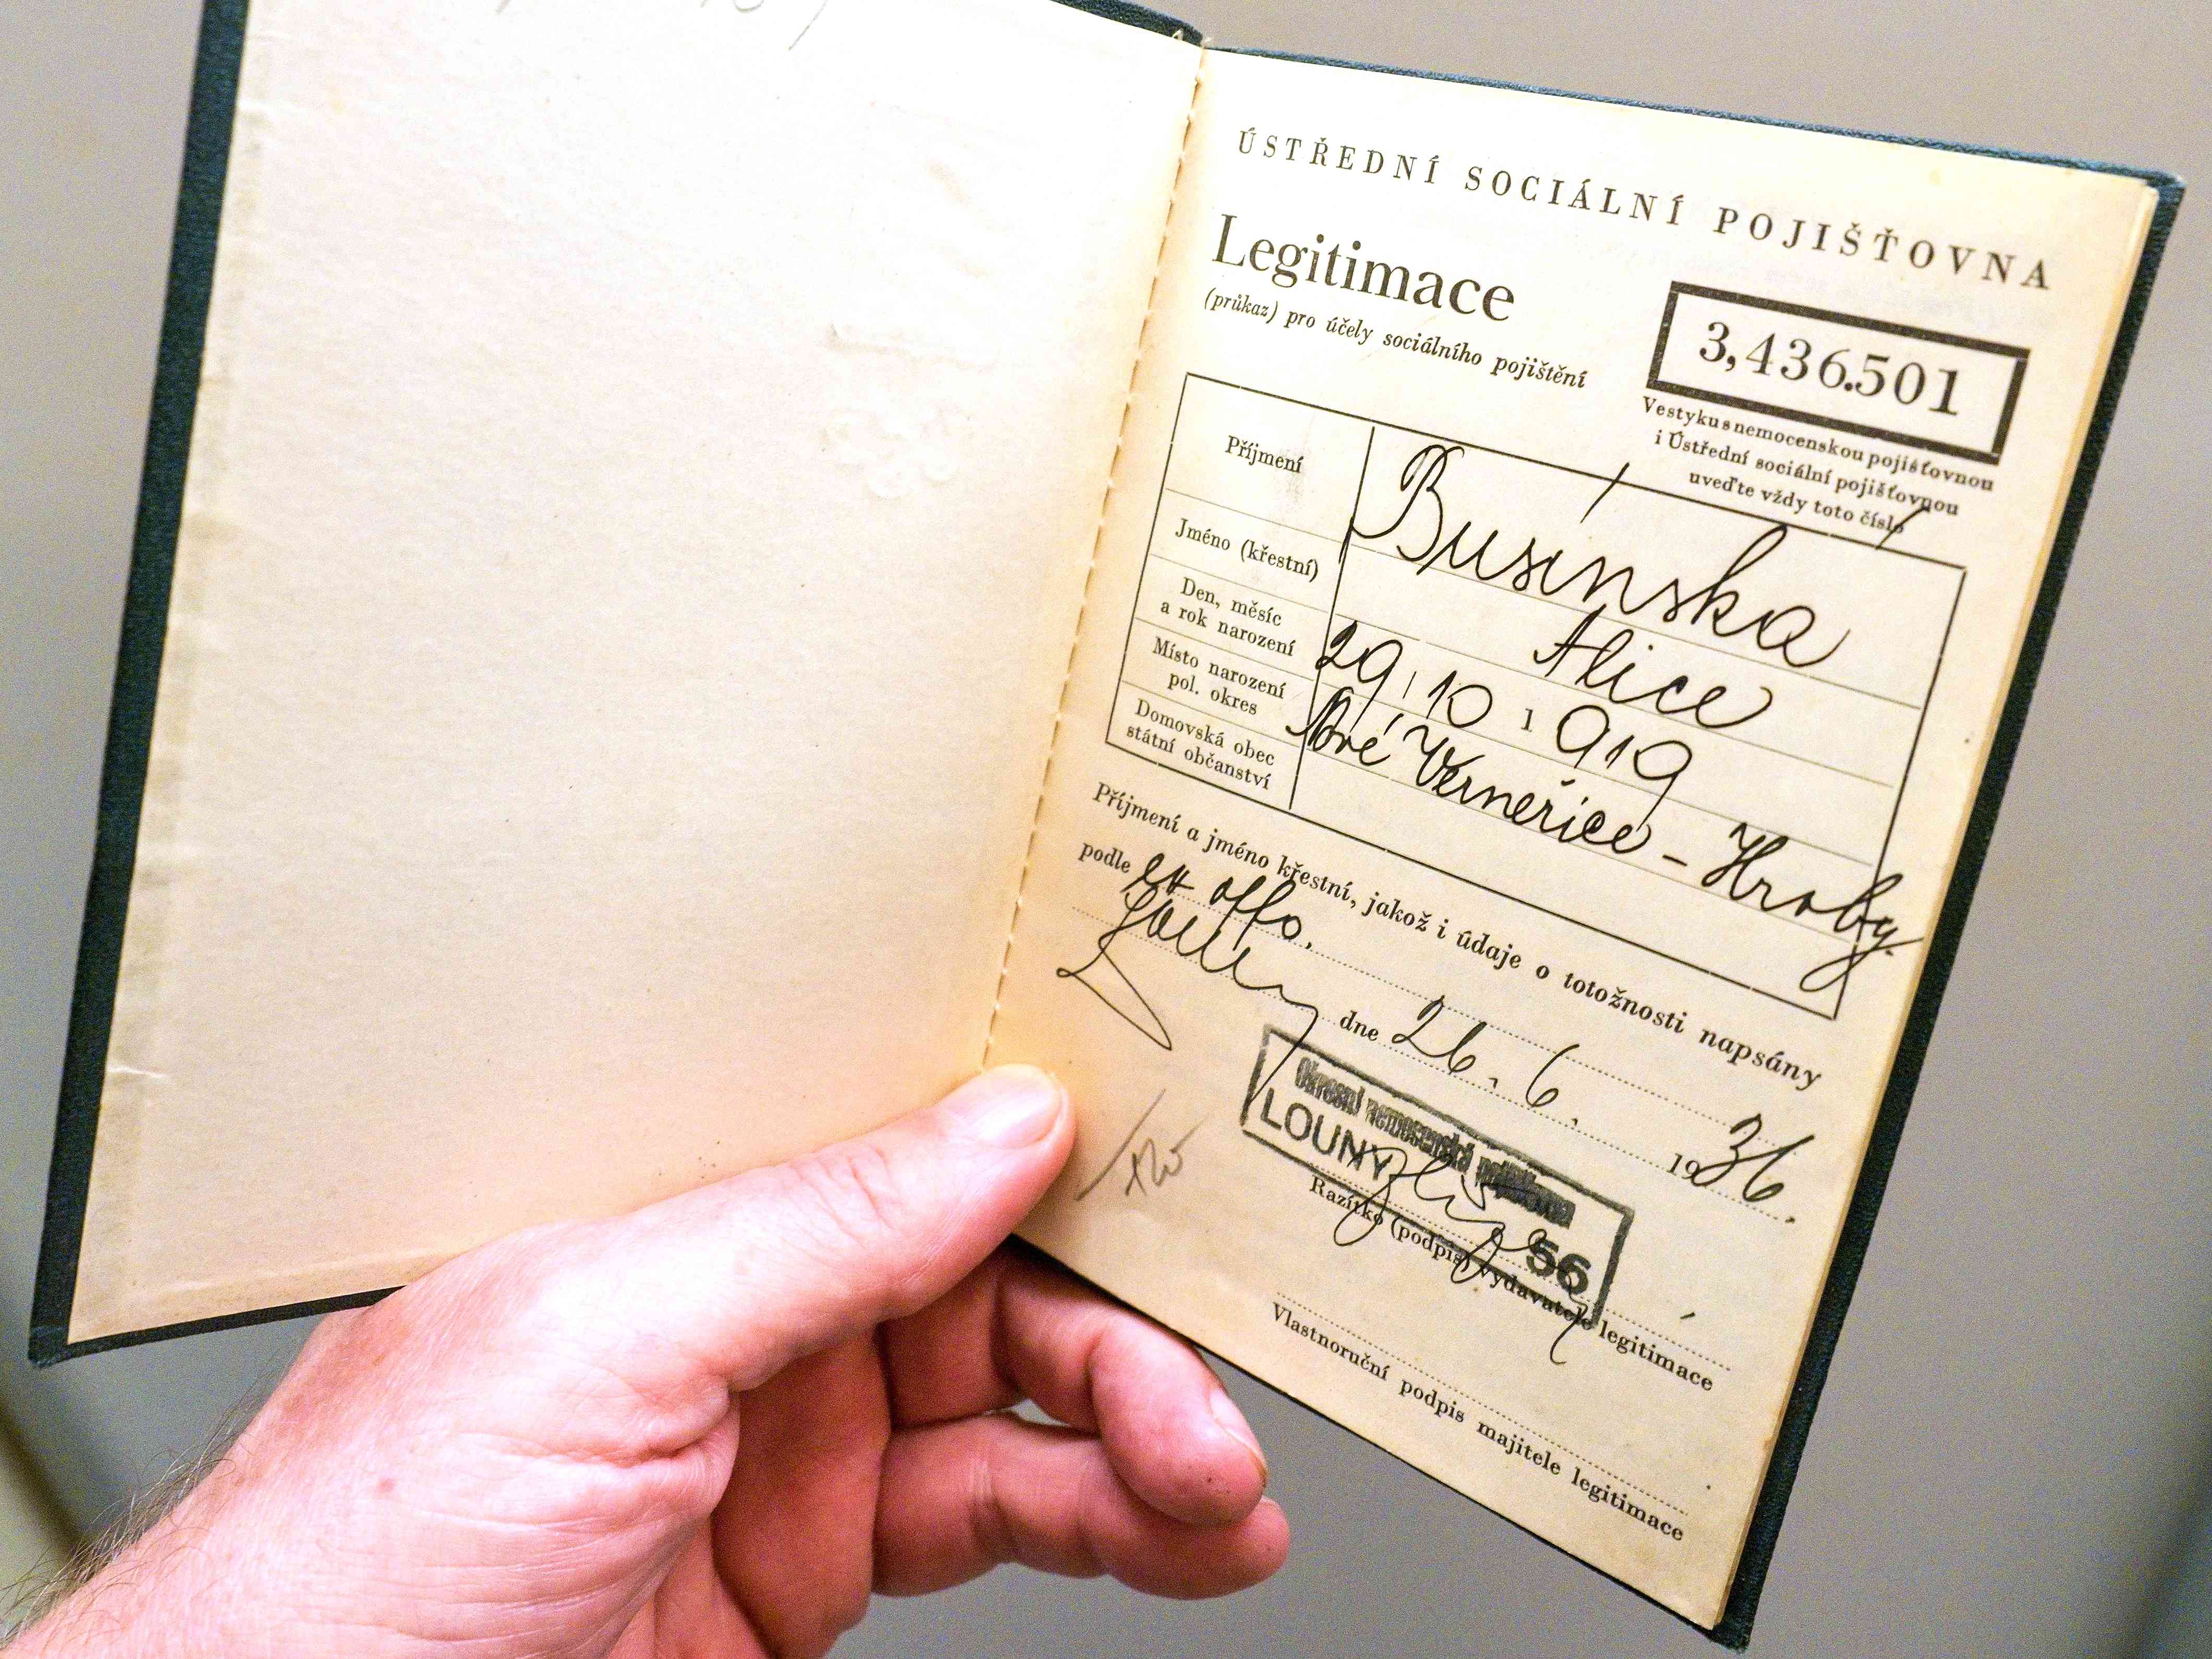 ÚSTŘEDNÍ SOCIÁLNÍ POJIŠŤOVNA
Legitimace
(průkaz) pro účely sociálního pojištění
3,436.501
Ve styku s nemocenskou pojišťovnou
i Ústřední sociální pojišťovnou
uveďte vždy toto číslo
Příjmení
Businská
Jméno (křestní)
Alice
Den, měsíc
a rok narození
29 10 1919
Místo narození
pol. okres
Nové Verneřice - Hroby
Domovská obec
státní občanství
Příjmení a jméno křestní, jakož i údaje o totožnosti napsány
podle ex offo.
dne 26. 6. 1936.
Okresní nemocenská pojišťovna
LOUNY
56
Razítko (podpis) vydavatele legitimace
Vlastnoruční podpis majitele legitimace